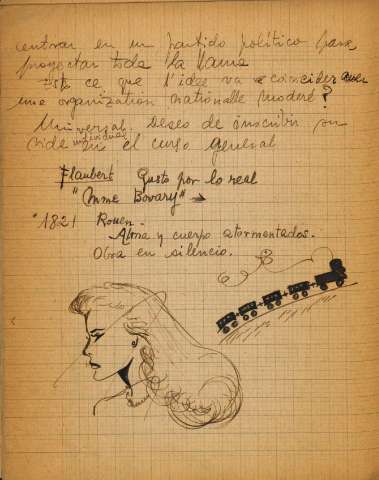 entrar en un partido político para
proyectar toda la llama
Est ce que l'idée va coincider avec
une organization nationalle moderé?
Universal: Deseo de inscribir su
vida individual en el curso general
Flaubert Gusto por lo real
"Mme Bovary" →
1821 Rouen.
Alma y cuerpo atormentados.
Obra en silencio.